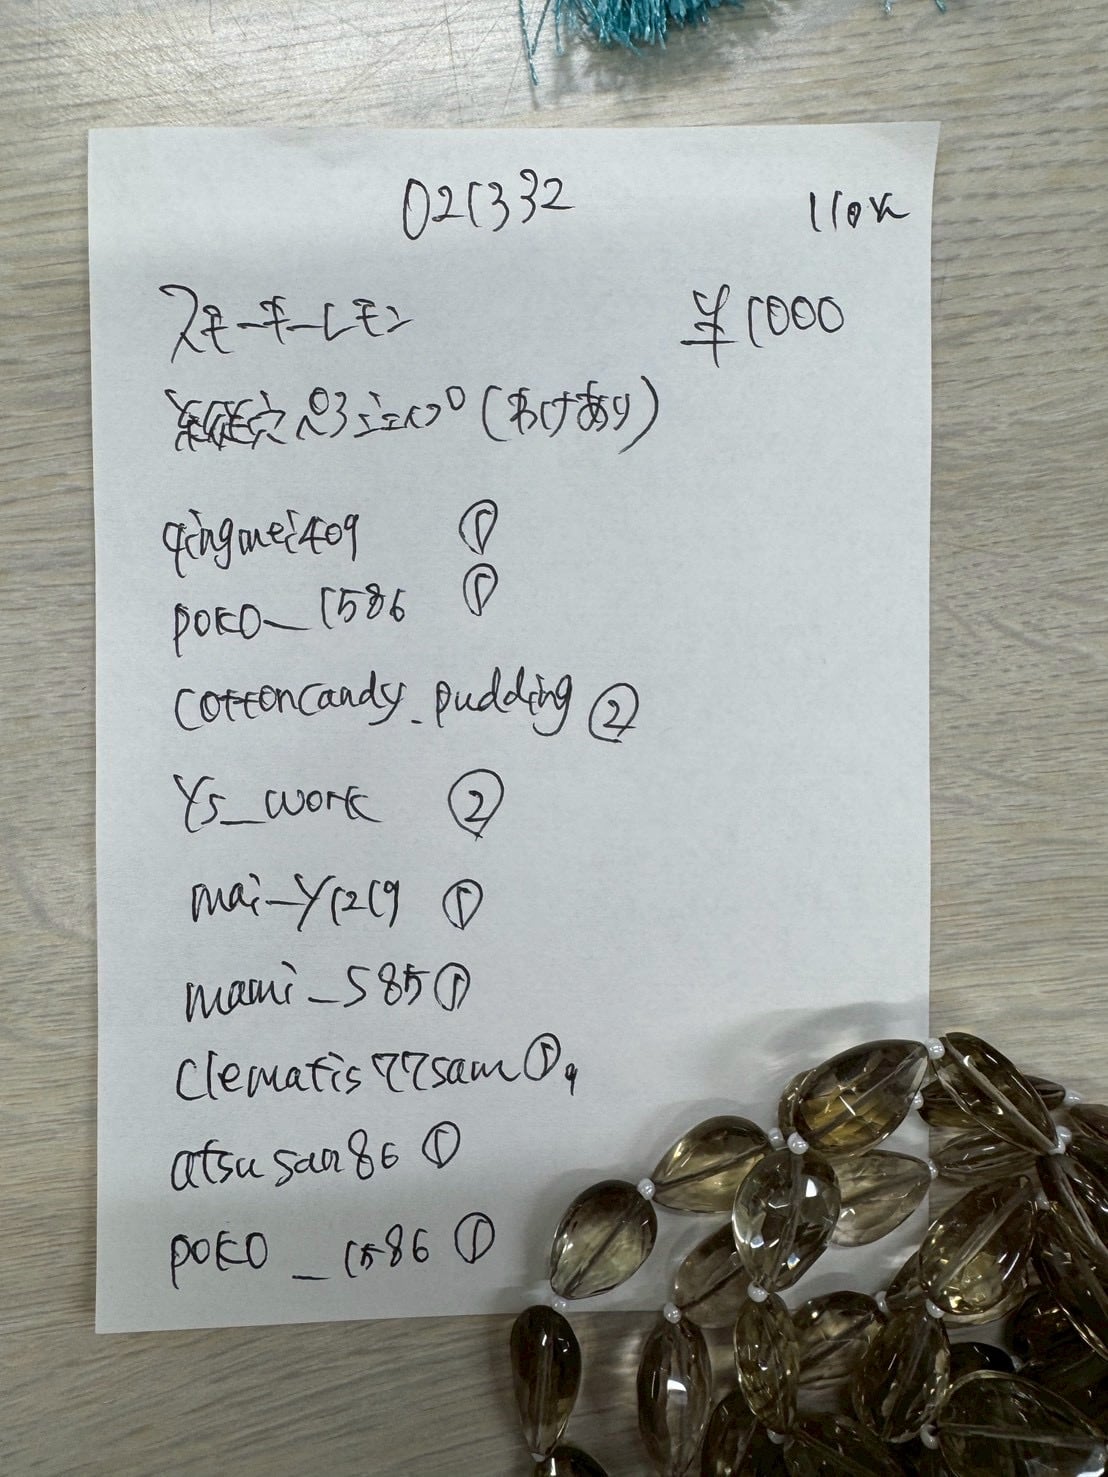 021332
110k
スモーキーレモン ¥1000
縦穴 (わけあり)
qingmei409 ①
poko_1586 ①
cottoncandy_pudding ②
Ys_work ②
mai_y1219 ①
mami_585 ①
clematis77sam ①
atsusan86 ①
poko_1586 ①